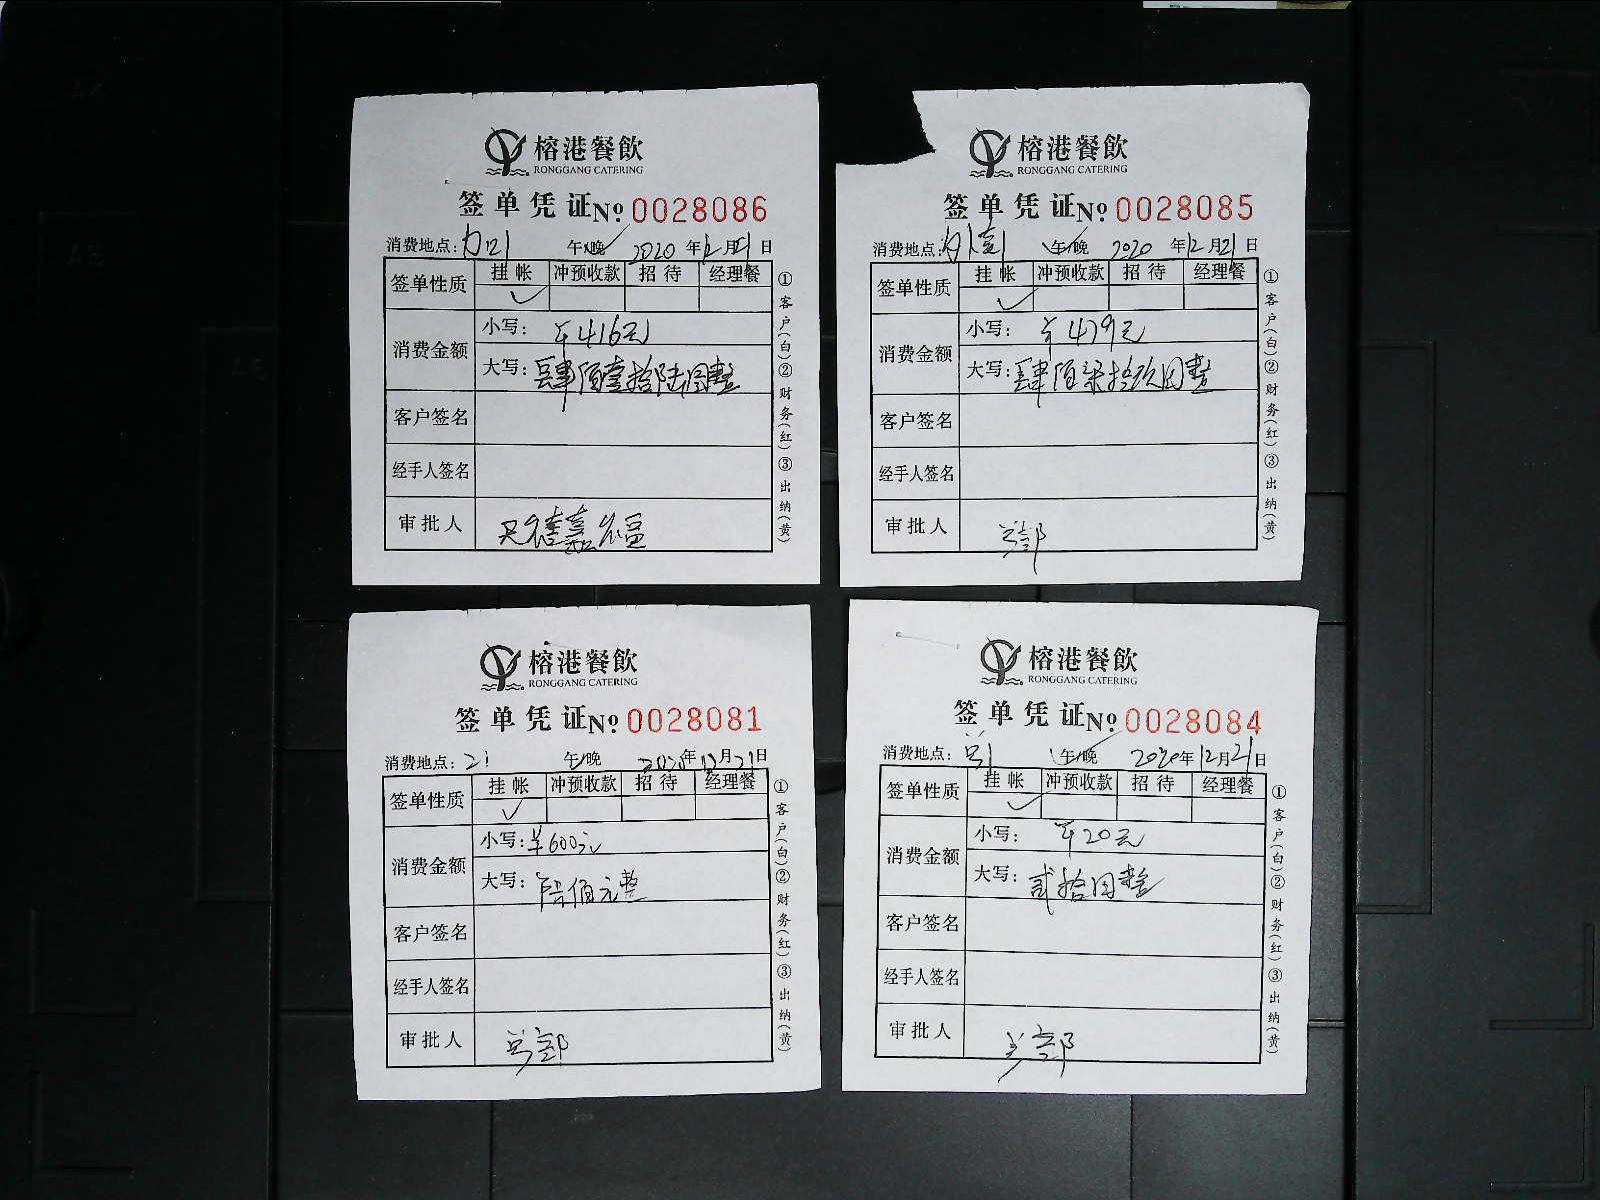 榕港餐飲
RONGGANG CATERING
签单凭证№ 0028086
消费地点: 午/晚 2020年12月21日
签单性质 挂帐 冲预收款 招待 经理餐
✓
消费金额
小写: ¥416元
大写: 肆佰壹拾陆圆整
客户签名
经手人签名
审批人
①客户(白)②财务(红)③出纳(黄)
榕港餐飲
RONGGANG CATERING
签单凭证№ 0028085
消费地点: 午/晚 2020年12月21日
签单性质 挂帐 冲预收款 招待 经理餐
✓
消费金额
小写: ¥479元
大写: 肆佰柒拾玖圆整
客户签名
经手人签名
审批人
①客户(白)②财务(红)③出纳(黄)
榕港餐飲
RONGGANG CATERING
签单凭证№ 0028081
消费地点: 午/晚 2020年12月21日
签单性质 挂帐 冲预收款 招待 经理餐
✓
消费金额
小写: ¥600元
大写: 陆佰元整
客户签名
经手人签名
审批人
①客户(白)②财务(红)③出纳(黄)
榕港餐飲
RONGGANG CATERING
签单凭证№ 0028084
消费地点: 午/晚 2020年12月21日
签单性质 挂帐 冲预收款 招待 经理餐
✓
消费金额
小写: ¥20元
大写: 贰拾圆整
客户签名
经手人签名
审批人
①客户(白)②财务(红)③出纳(黄)